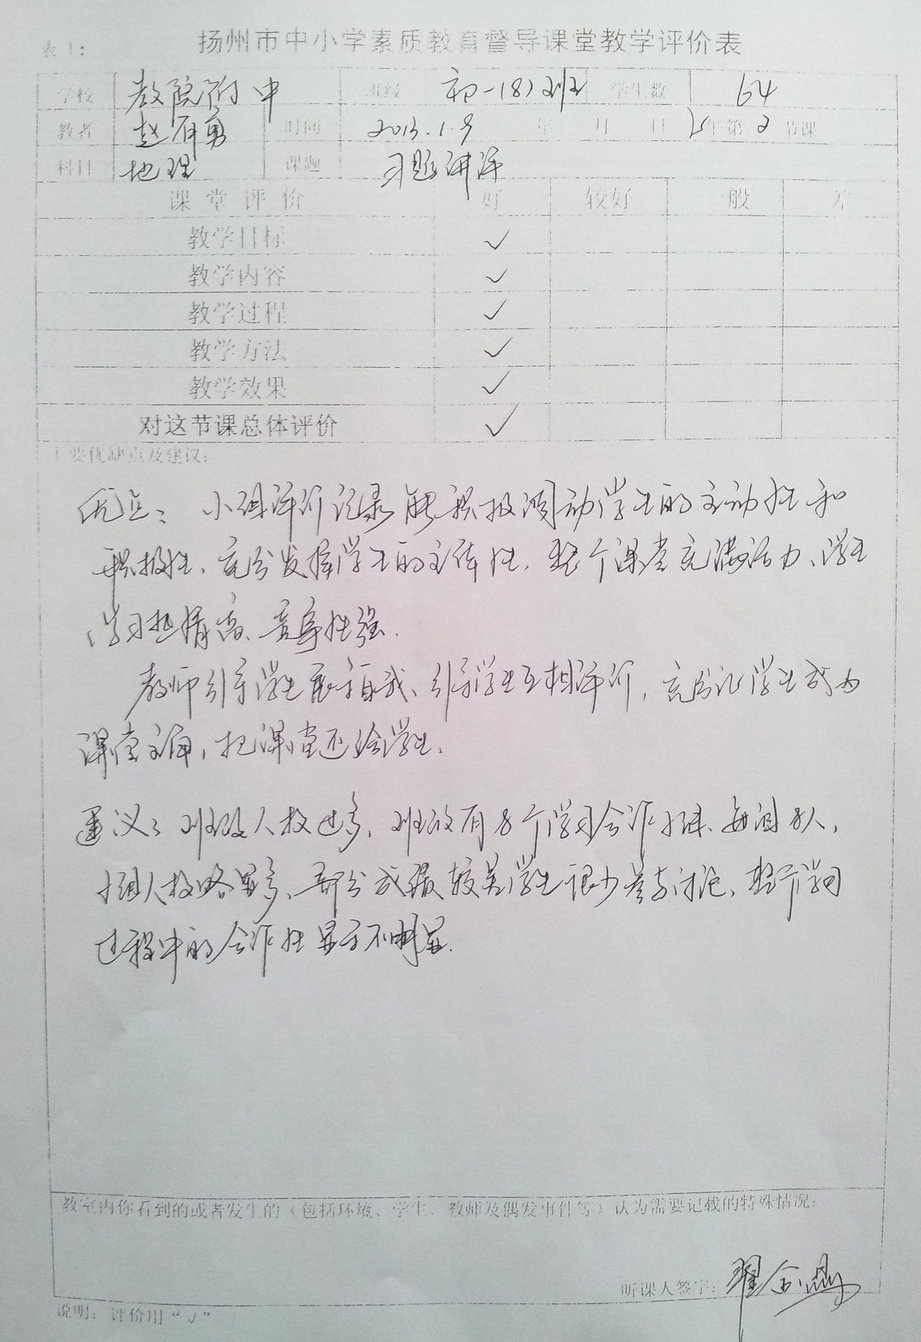 表1：
扬州市中小学素质教育督导课堂教学评价表
学校 教院附中 班级 初一(8)班 学生数 64
教者 赵有勇 时间 2013.1.9 年 月 日 午第2节课
科目 地理 课题 习题讲评
课堂评价 好 较好 一般 差
教学目标 ✓
教学内容 ✓
教学过程 ✓
教学方法 ✓
教学效果 ✓
对这节课总体评价 ✓
主要优缺点及建议：
优点：小组评价记录能积极调动学生的主动性和
积极性、充分发挥学生的主体性，整个课堂充满活力、学生
学习热情高、竞争性强.
教师引导学生展示自我、引导学生互相评价，充分让学生成为
课堂主角，把课堂还给学生.
建议：班级人数过多，班级有8个学习合作小组、每组8人，
小组人数略显多、部分成绩较差学生很少参与讨论、整个学习
过程中的合作性显示不明显.
教室内你看到的或者发生的（包括环境、学生、教师及偶发事件等）认为需要记载的特殊情况：
听课人签字：
说明：评价用“√”